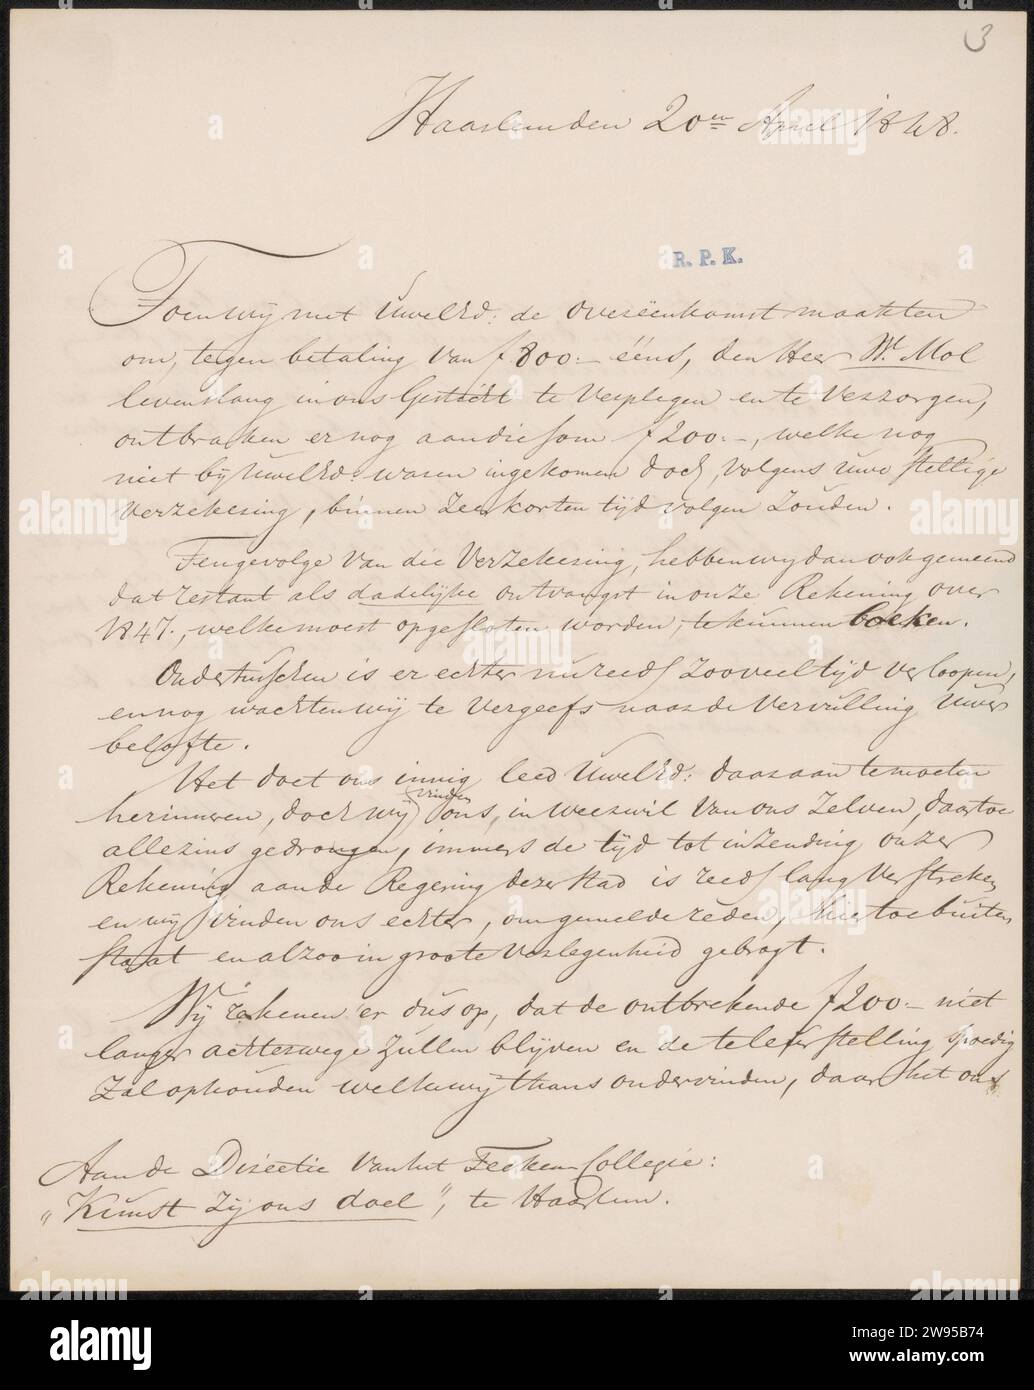 3
Haarlem den 20en April 1848.
R. P. K.
Toen wij met UwelEd: de overëenkomst maakten
om, tegen betaling van f 800.- ééns, den Heer Wt. Mol
levenslang in ons Gesticht te Verplegen en te Verzorgen,
ontbraken er nog aan die som f 200.-, welke nog
niet bij UwelEd: waren ingekomen doch, volgens uwe stellige
verzekering, binnen zeer korten tijd volgen zouden.
Tengevolge van die verzekering, hebben wij dan ook gemeend
dat restant als dadelijke ontvangst in onze Rekening over
1847., welke moest opgesloten worden, te kunnen boeken.
Ondertusschen is er echter nu reeds zooveel tijd verloopen,
en nog wachten wij te vergeefs naar de vervulling Uwer
belofte.
Het doet ons innig leed UwelEd: daaraan te moeten
herinneren, doch wij vinden ons, in weerwil van ons zelven, daartoe
allezins gedrongen, immers de tijd tot inzending onzer
Rekening aan de Regering dezer stad is reeds lang verstreken
en wij vinden ons echter, om gemelde reden, hiertoe buiten
staat en alzoo in groote verlegenheid gebragt.
Wij rekenen er dus op, dat de ontbrekende f 200.- niet
langer achterwege zullen blijven en de teleurstelling spoedig
zal ophouden welke wij thans ondervinden, daar het ons
Aan de Directie van het Teeken-Collegie:
"Kunst zij ons doel", te Haarlem.
alamy
Image ID: 2W95B74
www.alamy.com